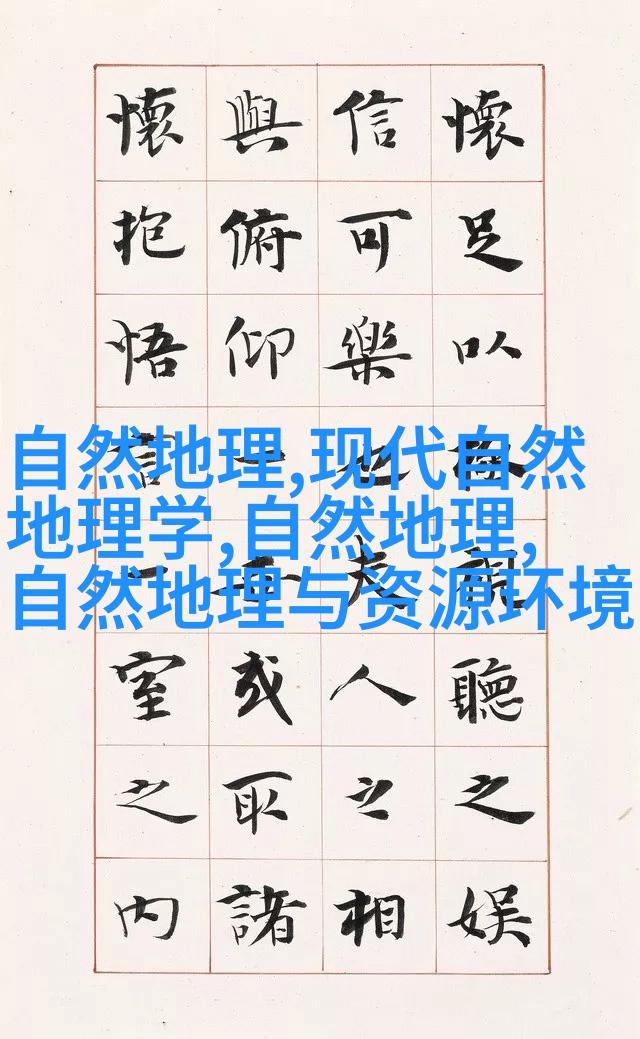 懷足以極視聽之娛
信可樂也夫人之相
與俯仰一世或取諸
懷抱悟言一室之内
自然地理,现代自然
地理学,自然地理,
自然地理与资源环境